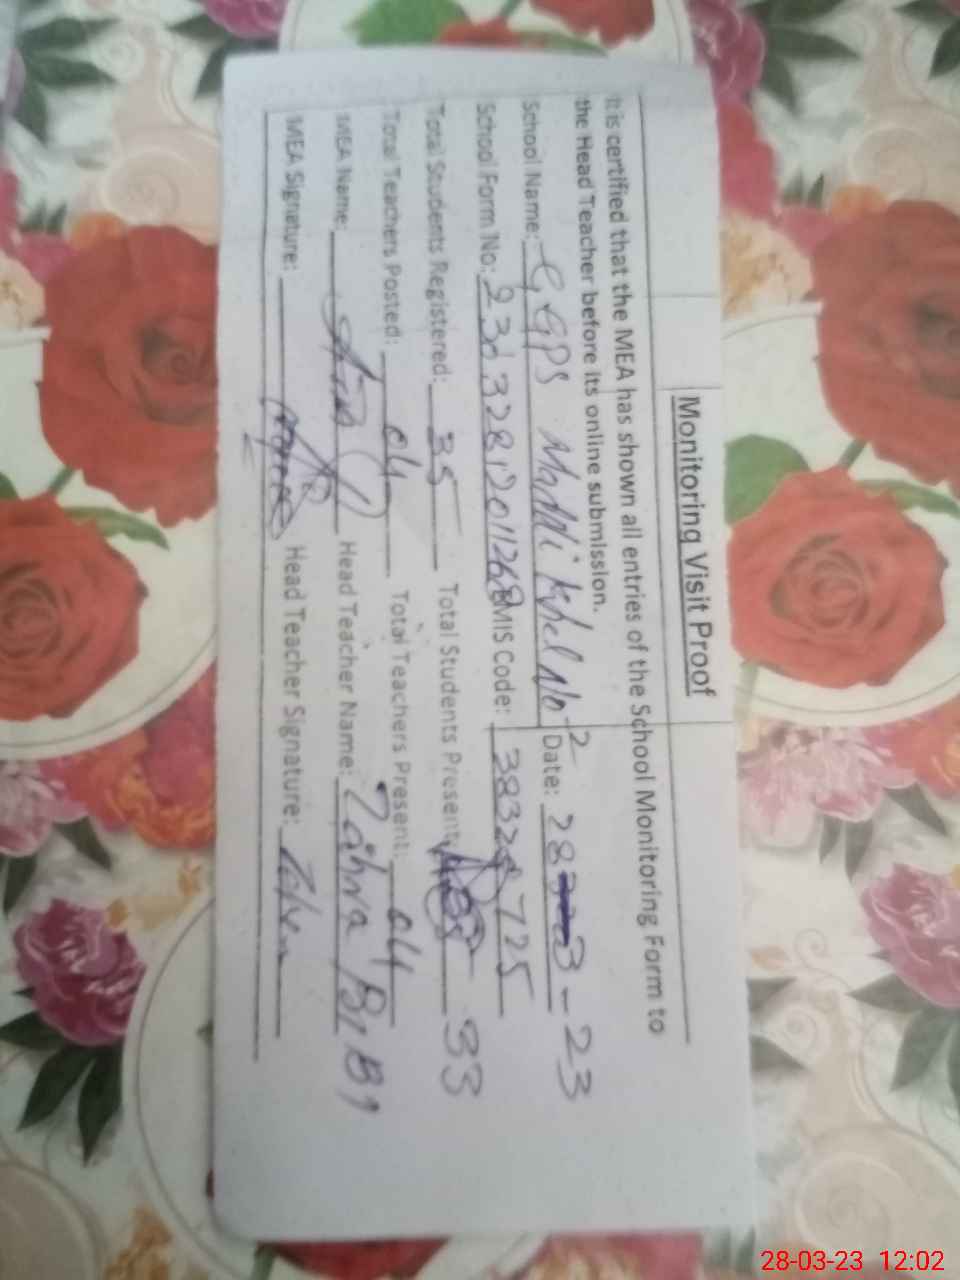 Monitoring Visit Proof
It is certified that the MEA has shown all entries of the School Monitoring Form to
the Head Teacher before its online submission.
School Name: GGPS Khel No 2 Date: 28-3-23
School Form No: EMIS Code:
Total Students Registered: 35 Total Students Present: 33
Total Teachers Posted: 04 Total Teachers Present: 04
MEA Name: Head Teacher Name: Zahra BiBi
MEA Signature: Head Teacher Signature:
28-03-23 12:02